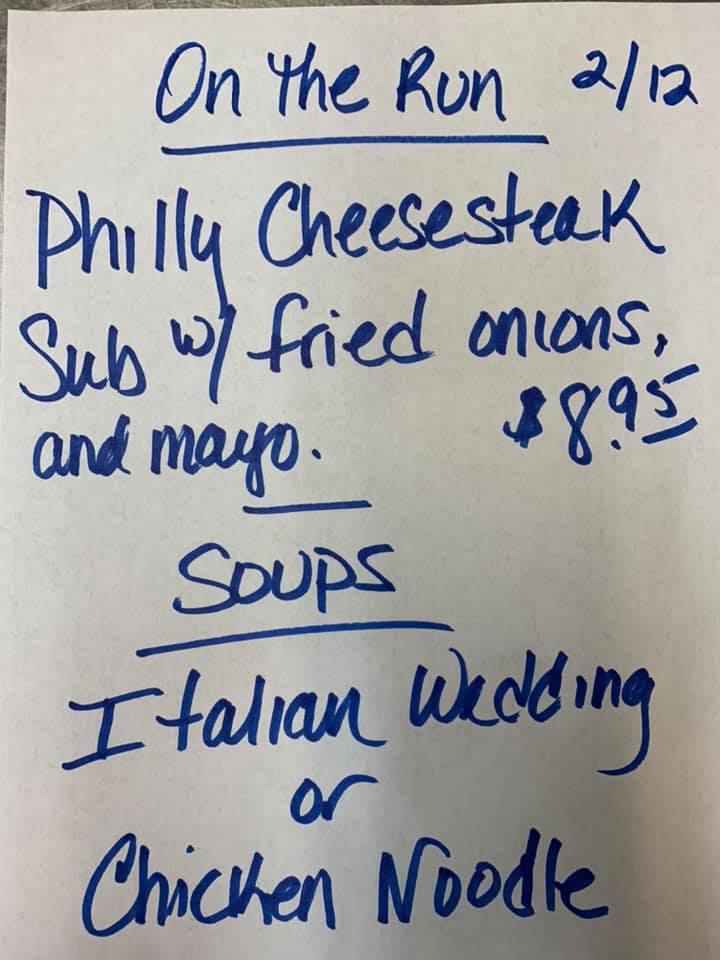 On the Run 2/12
Philly Cheesesteak
Sub w/ fried onions,
and mayo. $8.95
Soups
Italian Wedding
or
Chicken Noodle